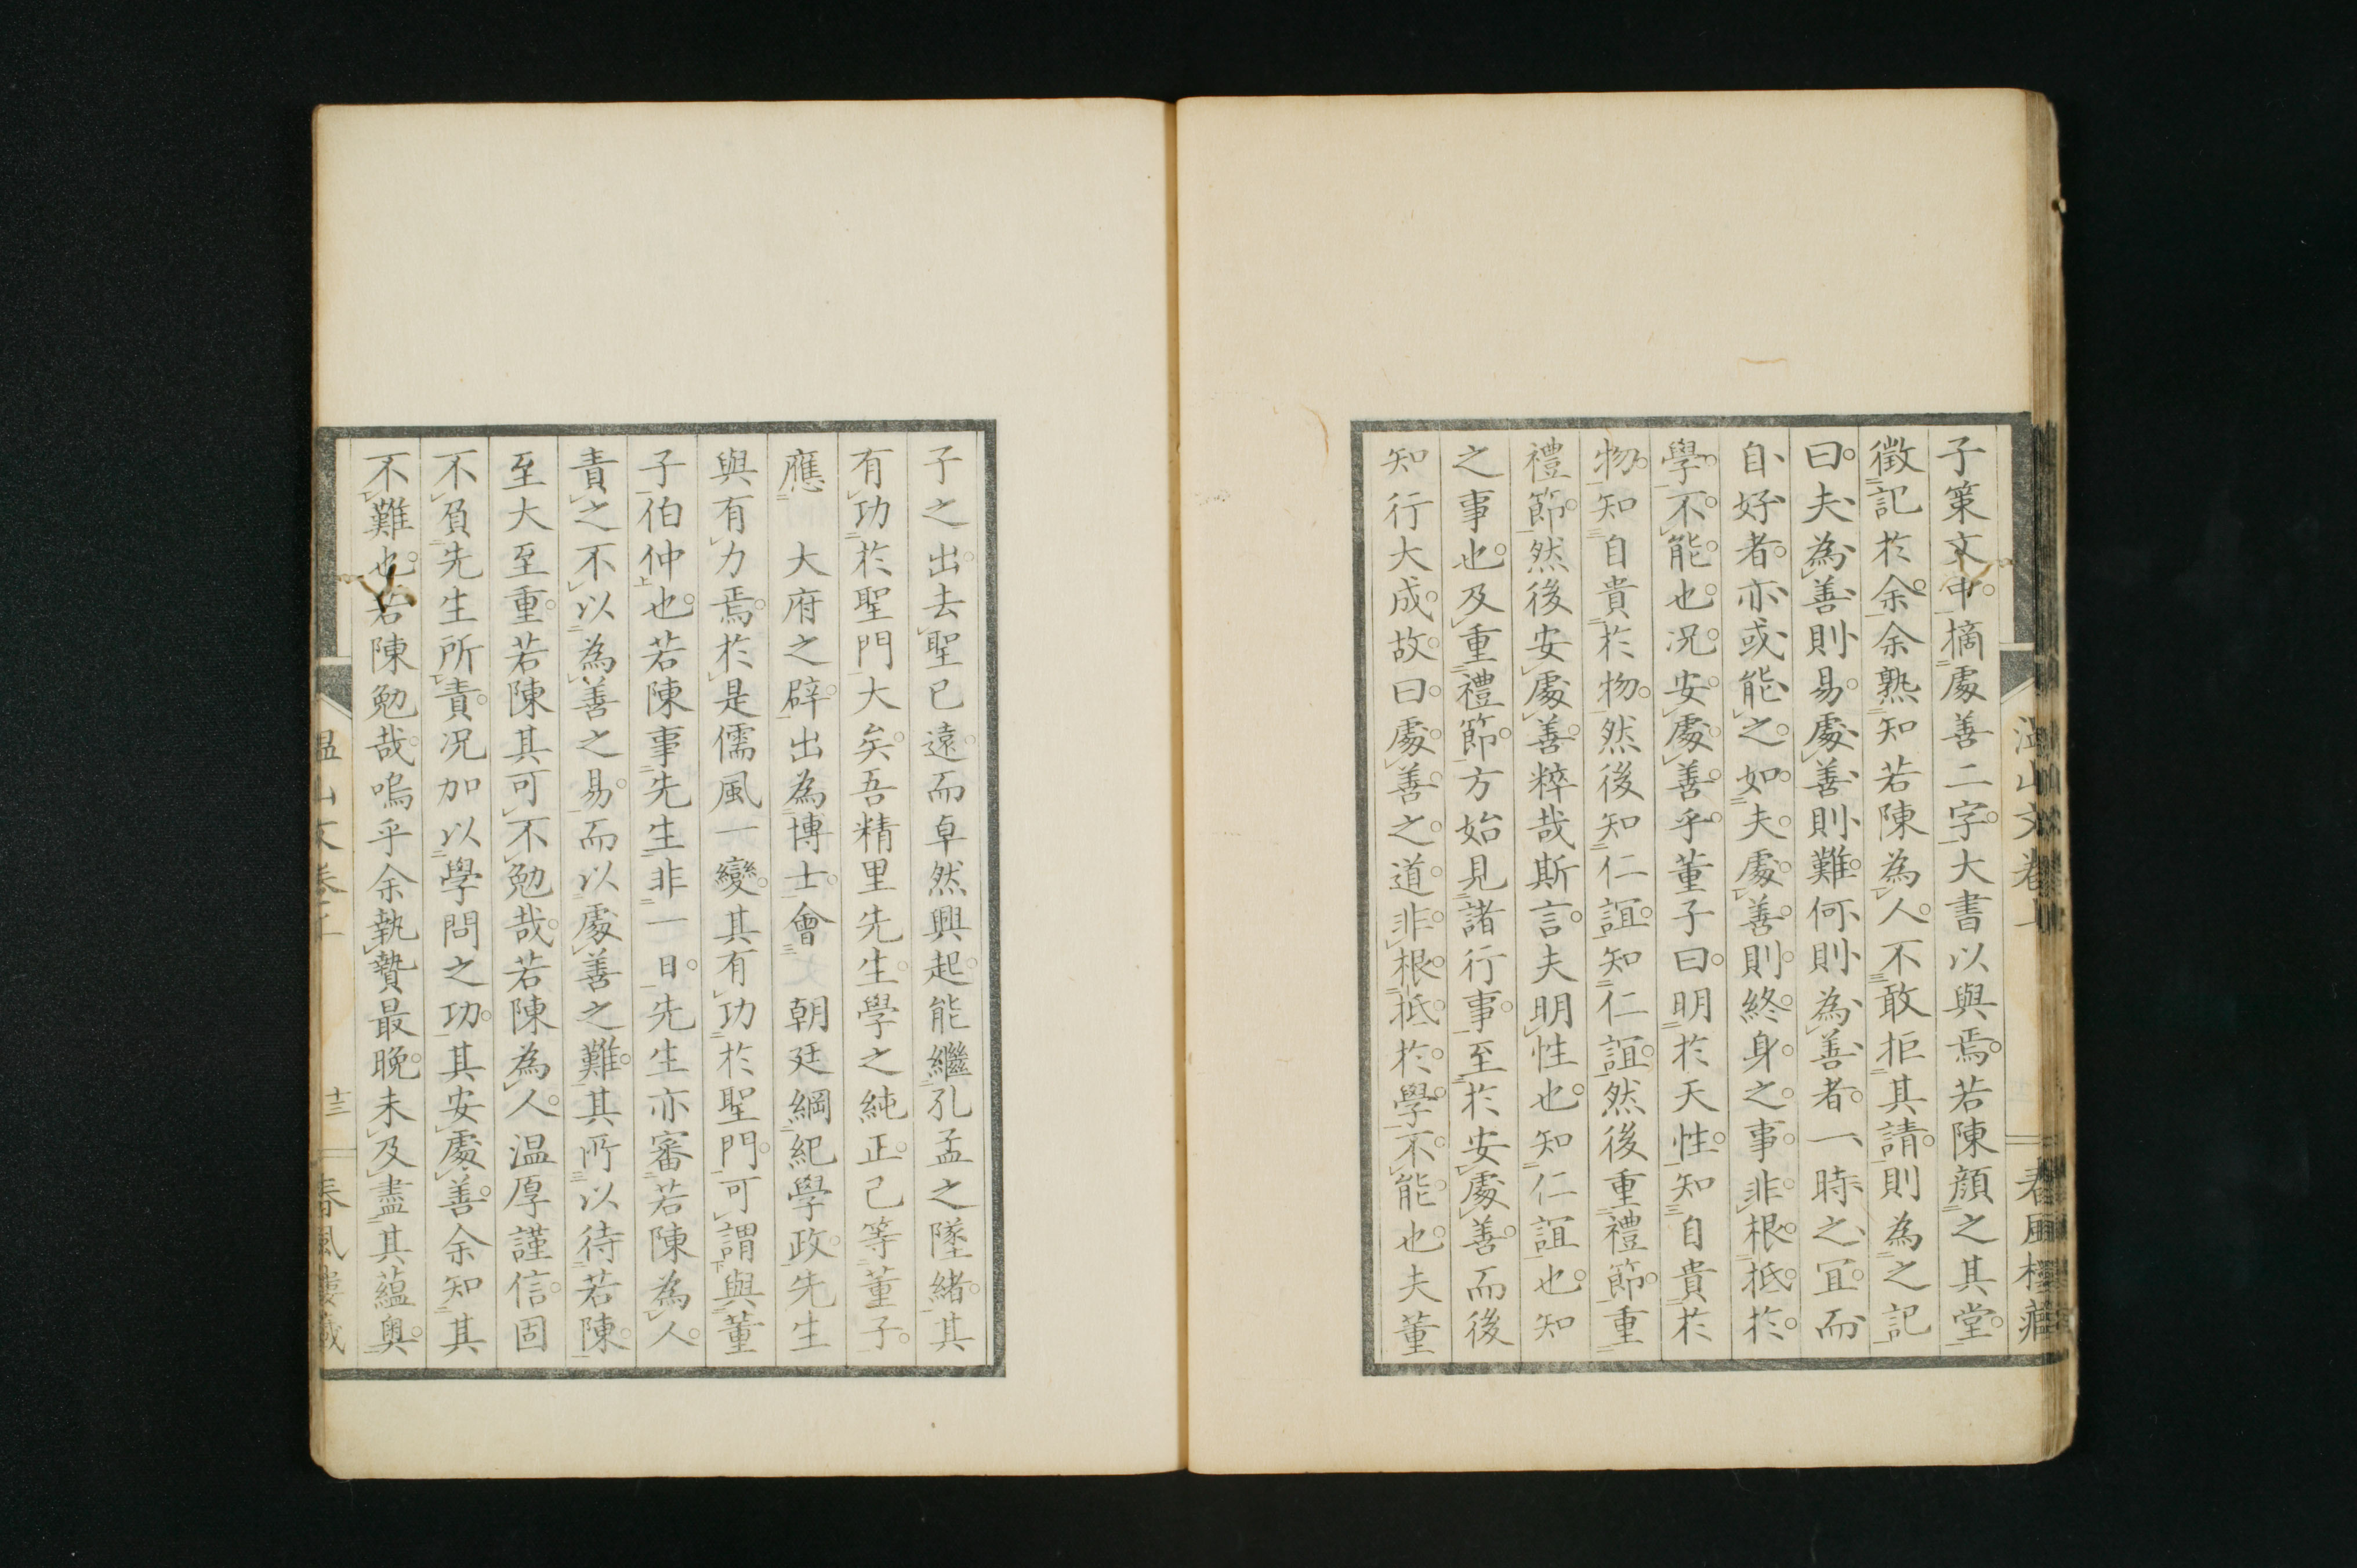 子策文中摘處善二字大書以與焉若陳顔之其堂
徵記於余余熟知若陳為人不敢拒其請則為之記
曰夫為善則易處善則難何則為善者一時之宜而
自好者亦或能之如夫處善則終身之事非根柢於
學不能也况安處善乎董子曰明於天性知自貴於
物知自貴於物然後知仁誼知仁誼然後重禮節重
禮節然後安處善粹哉斯言夫明性也知仁誼也知
之事也及重禮節方始見諸行事至於安處善而後
知行大成故曰處善之道非根柢於學不能也夫董
子之出去聖已遠而卓然興起能繼孔孟之墜緒其
有功於聖門大矣吾精里先生學之純正己等董子
應　大府之辟出為博士會　朝廷綱紀學政先生
與有力焉於是儒風一變其有功於聖門可謂與董
子伯仲也若陳事先生非一日先生亦審若陳為人
責之不以為善之易而以處善之難其所以待若陳
至大至重若陳其可不勉哉若陳為人温厚謹信固
不負先生所責况加以學問之功其安處善余知其
不難也若陳勉哉嗚乎余執贄最晚未及盡其蘊奥
温山文卷上
十三
春風樓藏